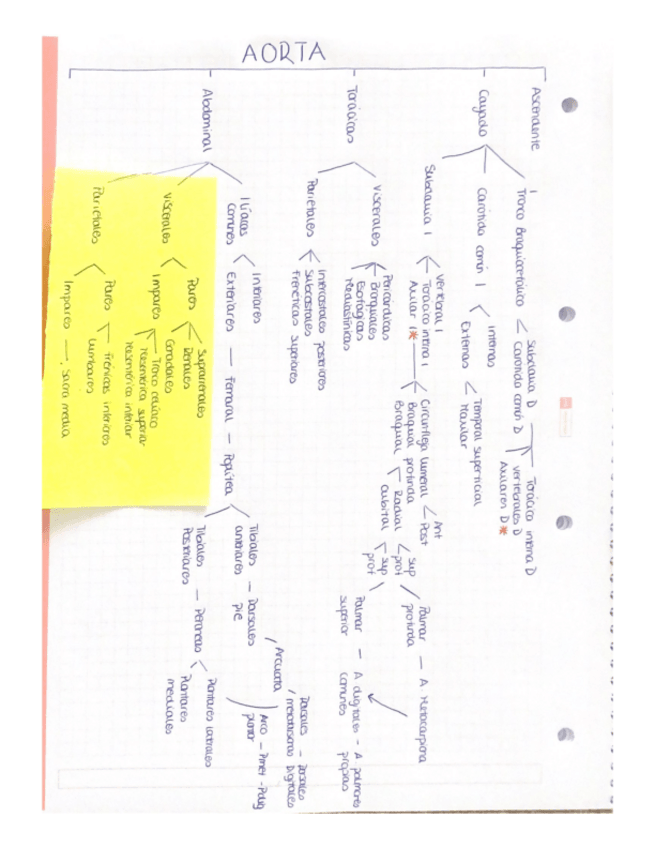 AORTA
Ascendente
Cayado
Tronco Braquiocefálico
Subclavia D
Torácica interna D
vertebrales D
Axilares D *
Carótida común D
Carótida común I
Internas
Externas
Temporal superficial
Maxilar
Subclavia I
vertebral I
Torácica interna I
Axilar I *
Circunfleja humeral
Ant
Post
Braquial profunda
Braquial
Radial
sup
prof
Cubital
sup
prof
Palmar
profunda
A. Metacarpona
Palmar
superior
A digitales
comunes
A palmares
propias
Torácicas
viscerales
Pericárdicas
Braquiales
Esofágicas
Mediastínicas
Parietales
Intercostales posteriores
Subcostales
frenéticas superiores
Abdominal
Ilíacas
comunes
Interiores
Exteriores
Femoral
Poplítea
Tibiales
anteriores
Dorsales
pie
Arcuata
Dorsales
metatarsianas
Dorsales
Digitales
Arco
plantar
Tibiales
Posteriores
Peroneas
Plantares laterales
Plantares
mediales
viscerales
Pares
Suprarrenales
Renales
Gonadales
Impares
Tronco celíaco
Mesentérica superior
Mesentérica inferior
Parietales
Pares
Frénicas inferiores
Lumbares
Impares
Sacra media